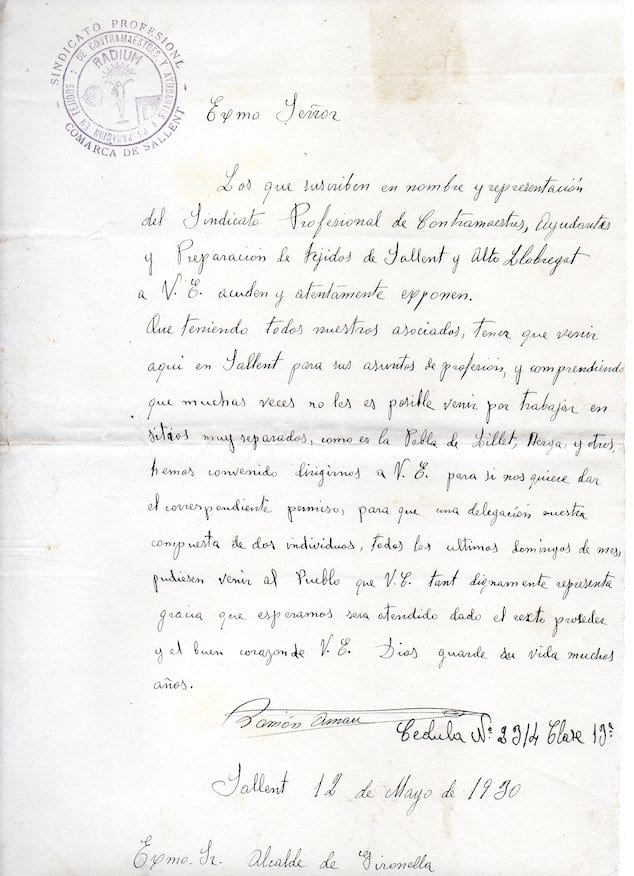 SINDICATO PROFESIONL
DE CONTRAMAESTRES Y AYUDANTES
PARACION EN TEJIDOS
RADIUM
COMARCA DE SALLENT
Exmo Señor
Los que suscriben en nombre y representación
del Sindicato Profesional de Contramaestres, Ayudantes
y Preparación de tejidos de Sallent y Alto Llobregat
a V. E. acuden y atentamente exponen.
Que teniendo todos nuestros asociados, tener que venir
aqui en Sallent para sus asuntos de profesión, y comprendiendo
que muchas veces no les es posible venir por trabajar en
sitios muy separados, como es la Pobla de Lillet, Berga, y otros,
hemos convenido dirigirnos a V. E. para si nos quiere dar
el correspondiente permiso, para que una delegación nuestra
compuesta de dos individuos, todos los ultimos domingos de mes,
pudiesen venir al Pueblo que V. E. tant dignamente representa
gracia que esperamos sera atendido dado el recto proceder
y el buen corazon de V. E. Dios guarde su vida muchos
años.
Ramón Arnau
Cedula Nº 2314 Clase 13ª
Sallent 12 de Mayo de 1930
Exmo. Sr. Alcalde de Gironella